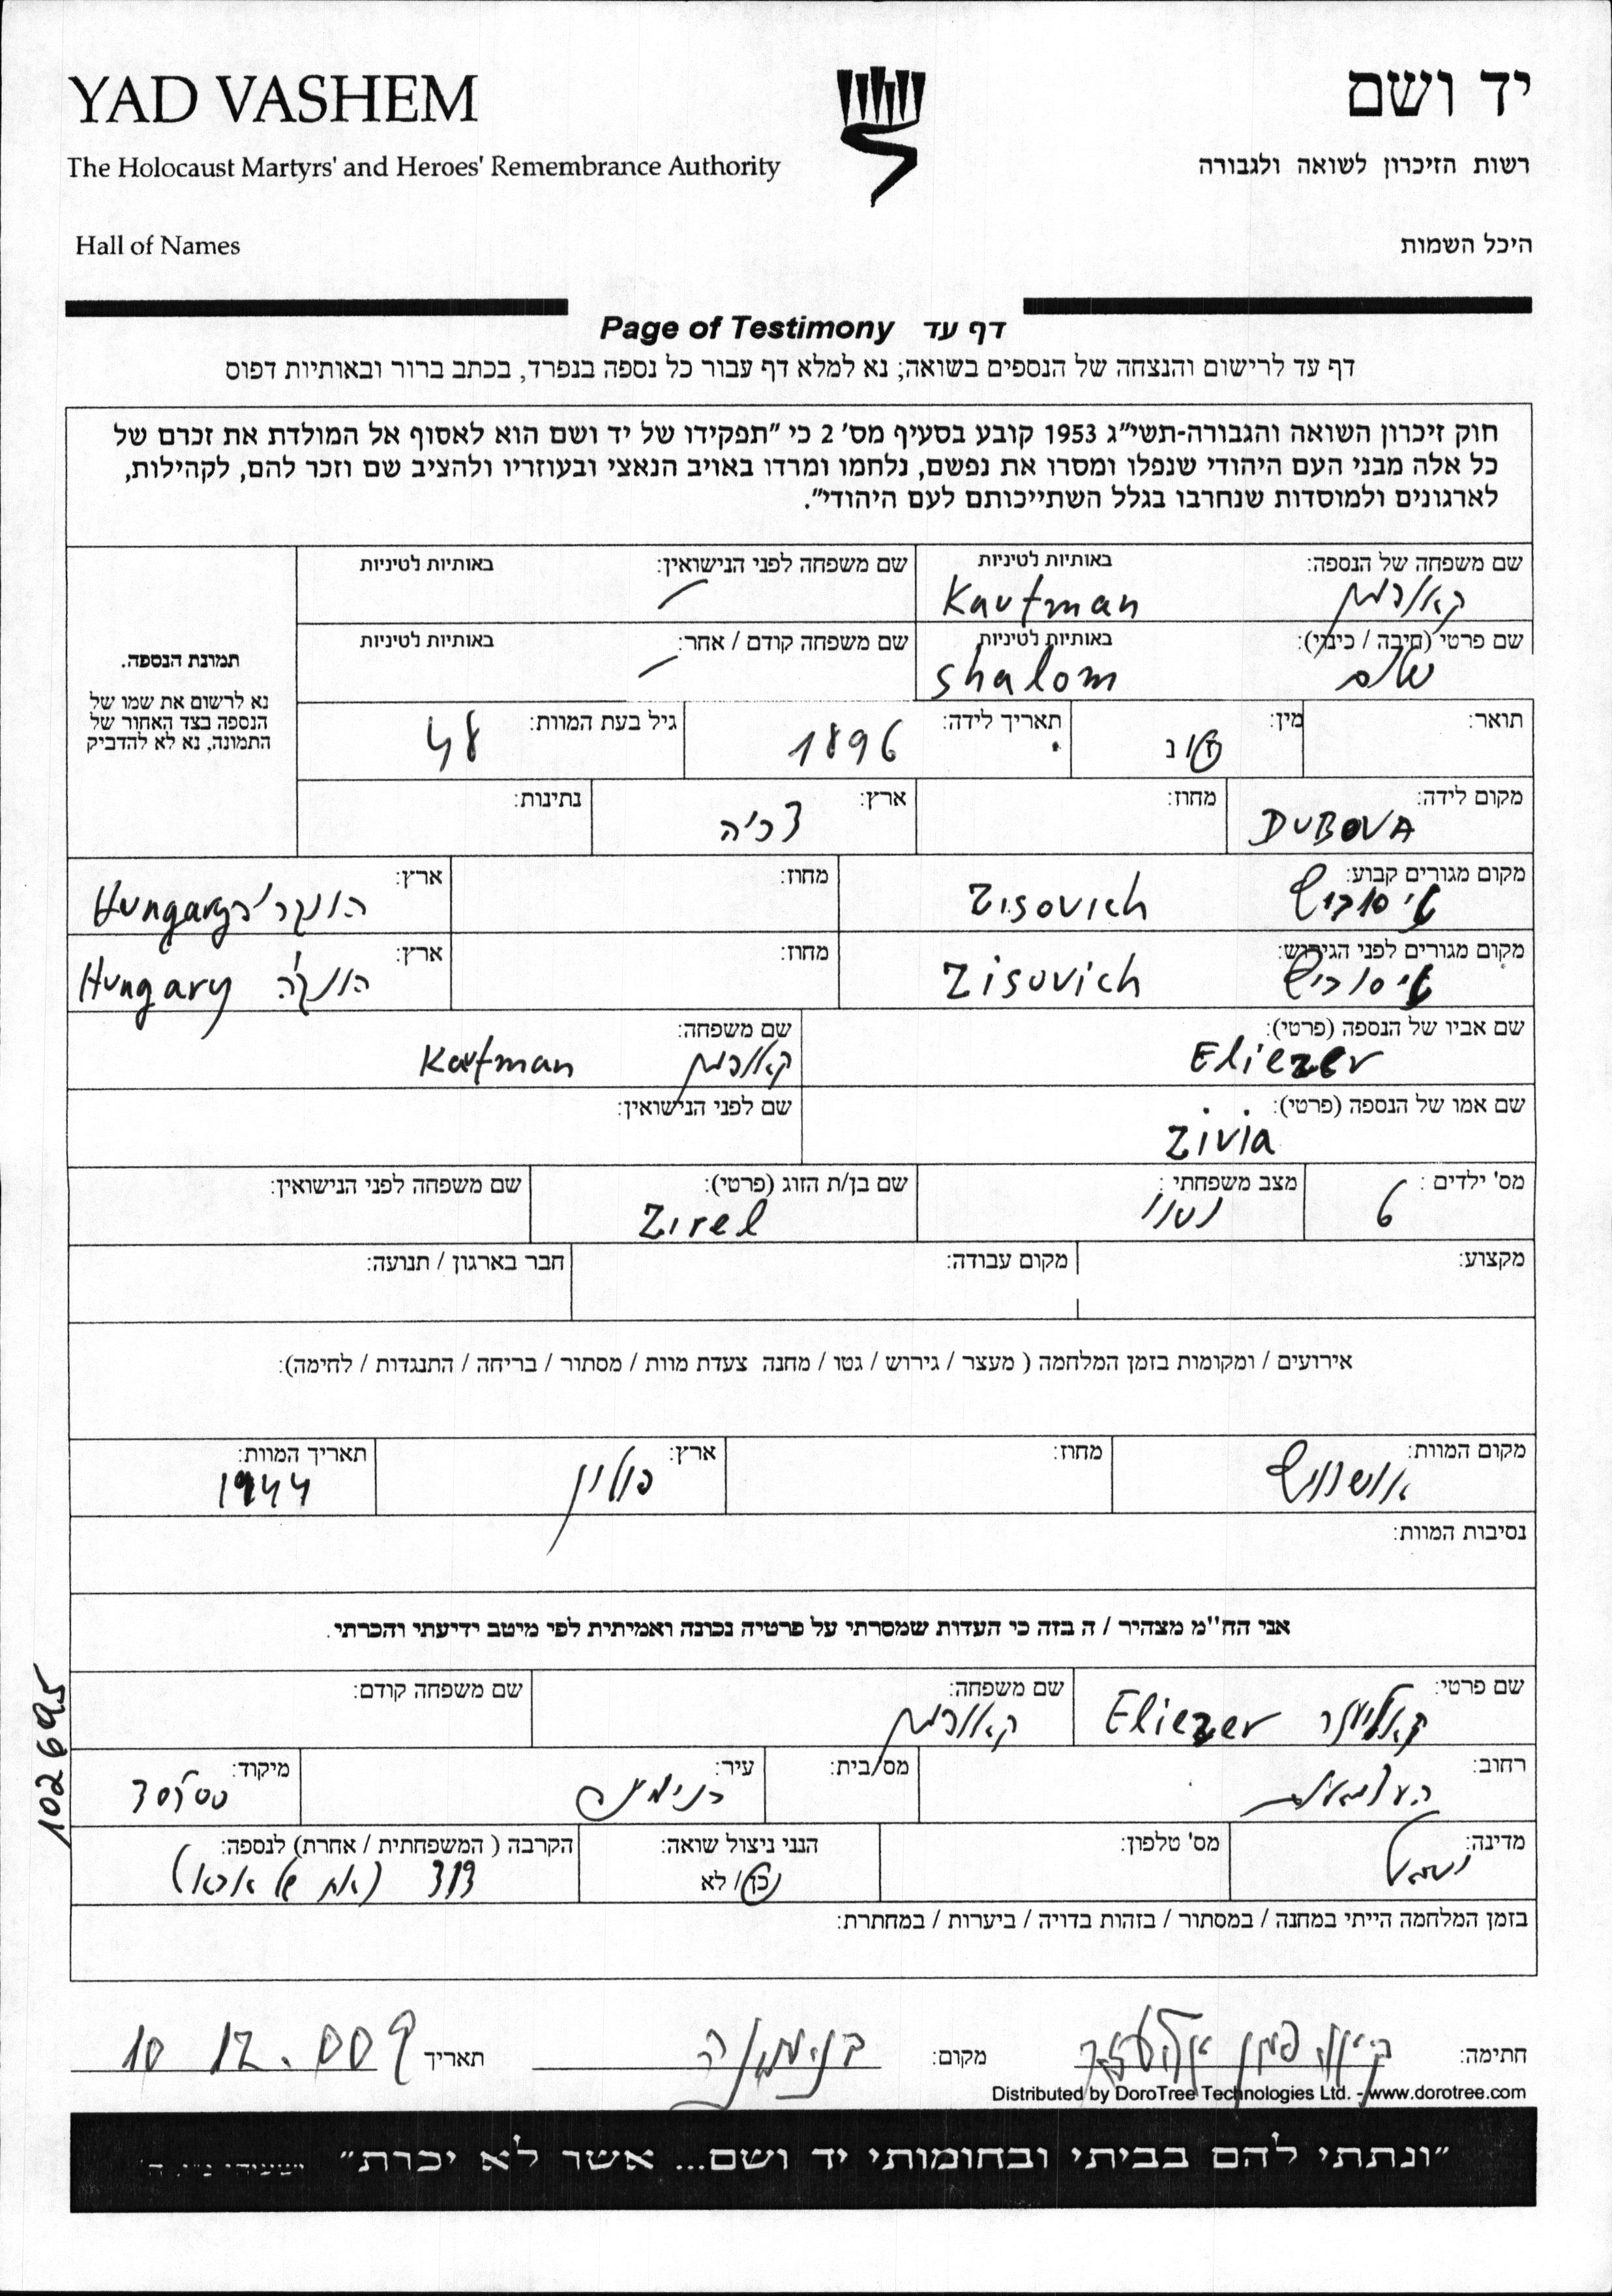 YAD VASHEM
יד ושם
The Holocaust Martyrs' and Heroes' Remembrance Authority
רשות הזיכרון לשואה ולגבורה
Hall of Names
היכל השמות
Page of Testimony דף עד
דף עד לרישום והנצחה של הנספים בשואה; נא למלא דף עבור כל נספה בנפרד, בכתב ברור ובאותיות דפוס
חוק זיכרון השואה והגבורה-תשי"ג 1953 קובע בסעיף מס' 2 כי "תפקידו של יד ושם הוא לאסוף אל המולדת את זכרם של
כל אלה מבני העם היהודי שנפלו ומסרו את נפשם, נלחמו ומרדו באויב הנאצי ובעוזריו ולהציב שם וזכר להם, לקהילות,
לארגונים ולמוסדות שנחרבו בגלל השתייכותם לעם היהודי".
שם משפחה של הנספה: באותיות לטיניות שם משפחה לפני הנישואין: באותיות לטיניות
קאופמן Kaufman
שם פרטי (חיבה / כינוי): באותיות לטיניות שם משפחה קודם / אחר: באותיות לטיניות
שלום shalom
תמונת הנספה.
נא לרשום את שמו של
הנספה בצד האחור של
התמונה, נא לא להדביק
תואר: מין: תאריך לידה: גיל בעת המוות:
ז / נ 1896 48
מקום לידה: מחוז: ארץ: נתינות:
DUBOVA צ'כיה
מקום מגורים קבוע: מחוז: ארץ:
Zisovich הונגריה Hungary
מקום מגורים לפני הגירוש: מחוז: ארץ:
Zisovich הונגריה Hungary
שם אביו של הנספה (פרטי): שם משפחה:
Eliezer קאופמן Kaufman
שם אמו של הנספה (פרטי): שם לפני הנישואין:
Zivia
מס' ילדים : מצב משפחתי : שם בן/ת הזוג (פרטי): שם משפחה לפני הנישואין:
6 נשוי Zirel
מקצוע: מקום עבודה: חבר בארגון / תנועה:
אירועים / ומקומות בזמן המלחמה ( מעצר / גירוש / גטו / מחנה צעדת מוות / מסתור / בריחה / התנגדות / לחימה):
מקום המוות: מחוז: ארץ: תאריך המוות:
אושוויץ פולין 1944
נסיבות המוות:
אני הח"מ מצהיר / ה בזה כי העדות שמסרתי על פרטיה נכונה ואמיתית לפי מיטב ידיעתי והכרתי.
שם פרטי: שם משפחה: שם משפחה קודם:
Eliezer קאופמן
רחוב: מס/בית: עיר: מיקוד:
העצמאות בנימינה
מדינה: מס' טלפון: הנני ניצול שואה: הקרבה ( המשפחתית / אחרת) לנספה:
ישראל כן / לא דוד (אח של אבא)
בזמן המלחמה הייתי במחנה / במסתור / בזהות בדויה / ביערות / במחתרת:
102695
חתימה: קאופמן אליעזר מקום: בנימינה תאריך 10 12.009
Distributed by DoroTree Technologies Ltd. - www.dorotree.com
"ונתתי להם בביתי ובחומותי יד ושם... אשר לא יכרת" ישעיהו נ"ו, ה'